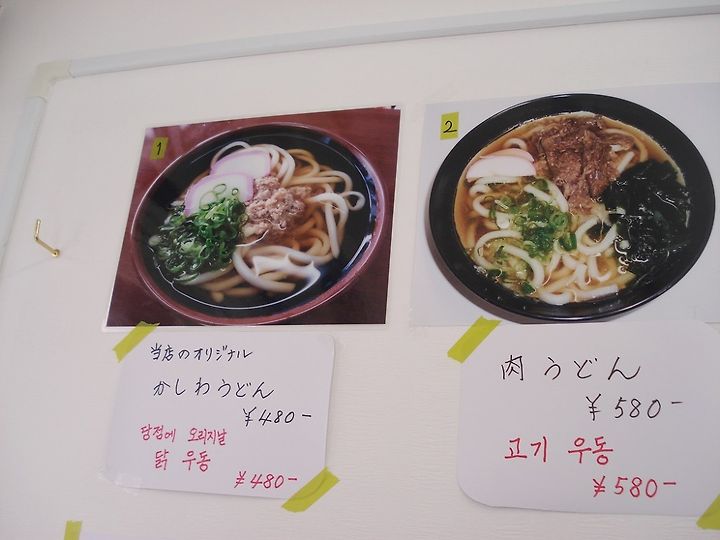 1
当店のオリジナル
かしわうどん
¥480-
당점에 오리지날
닭 우동
¥480-
2
肉うどん
¥580-
고기 우동
¥580-